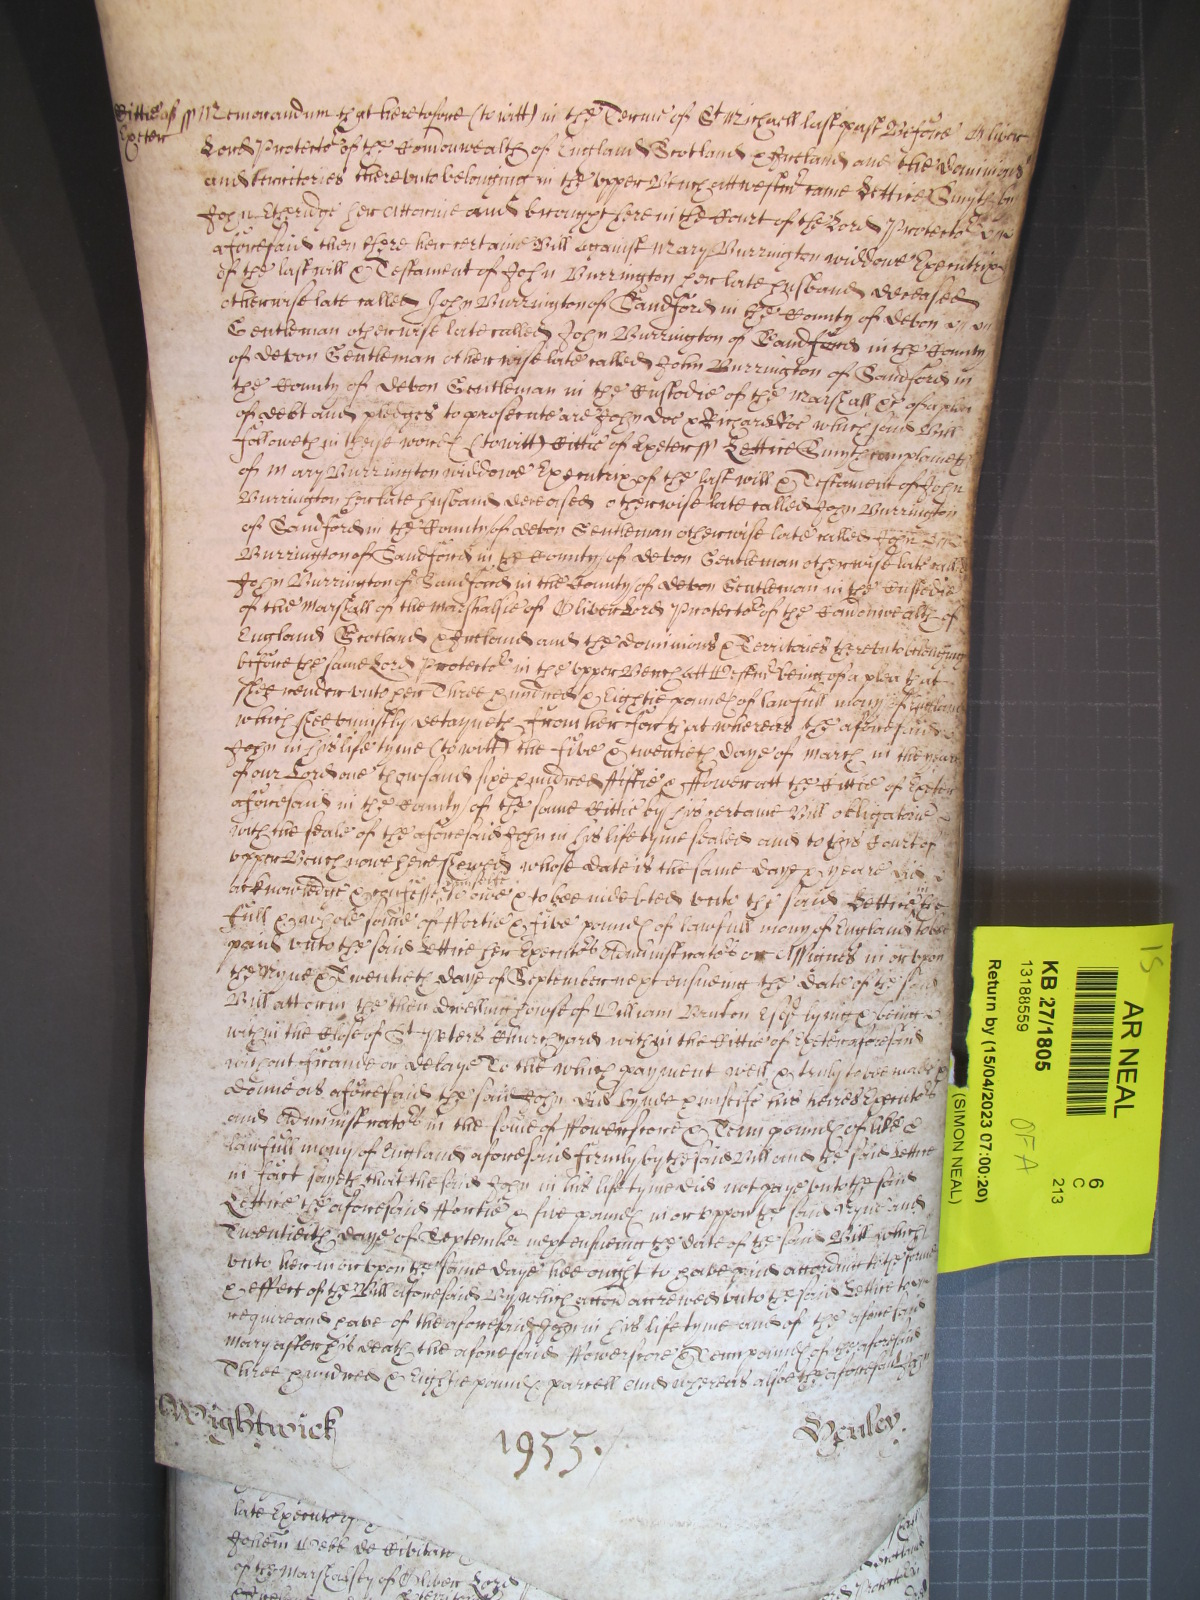 Cittie of Exeter ss Memorandum that heretofore (to witt) in the Terme of St Michaell last past Before Oliver
Lord Protector of the Comonwealth of England Scotland & Ireland and the Dominions
and territories thereunto belonging in the upper Bench att westmr came Lettice Smyth by
John Etheridge her Attornie and brought here in the Court of the Lord Protector
aforesaid then there her certaine Bill against Mary Burrington widdowe Executrix
of the last will & Testament of John Burrington her late husband deceased
otherwise late called John Burrington of Sandford in the County of Devon
Gentleman otherwise late called John Burrington of Sandford in the County
of Devon Gentleman otherwise late called John Burrington of Sandford in
the County of Devon Gentleman in the Custodie of the Marshall &c of a plea
of debt and pledges to prosecute are John Doe & Richard Roe which said Bill
followeth in these words (to witt) Cittie of Exeter ss Lettice Smyth complaineth
of Mary Burrington widdowe Executrix of the last will & Testament of John
Burrington her late husband deceased otherwise late called John Burrington
of Sandford in the County of Devon Gentleman otherwise late called John
Burrington of Sandford in the County of Devon Gentleman otherwise late called
John Burrington of Sandford in the County of Devon Gentleman in the Custodie
of the Marshall of the Marshalsie of Oliver Lord Protector of the Comonwealth of
England Scotland & Ireland and the dominions & Territories thereunto belonging
before the same Lord Protector in the upper Bench att Westmr being of a plea that
shee render unto her Three hundred & Eightie pounds of lawfull mony of England
which shee uniustly detayneth from her for that whereas the aforesaid
John in his life tyme (to witt) the five & twentieth daye of March in the yeare
of our Lord one thowsand sixe hundred fiftie & fower att the Cittie of Exeter
aforesaid in the County of the same Cittie by his certaine Bill obligatorie
with the seale of the aforesaid John in his life tyme sealed and to this Court of
upper Bench nowe here shewed whose date is the same daye & yeare did
acknowledge & confesse himselfe to owe & to bee indebted unto the said Lettice in the
full & whole some of Fortie & five pounds of lawfull mony of England to bee
paid unto the said Lettice her Executors Administrators or Assignes in or upon
the Nyne & Twentieth daye of September next ensueing the date of the said
Bill att or in the then dwelling howse of William Bruton Esqr lying & being
within the Close of St Peters Church yard within the Cittie of Exeter aforesaid
without fraude or delaye To the which payment well & truly to bee made &
donne as aforesaid the said John did bynde himselfe his heires Executors
and Administrators in the some of Fowerscore & Tenn pounds of like
lawfull mony of England aforesaid firmly by the said Bill and the said Lettice
in fact sayeth that the said John in his life tyme did not paye unto the said
Lettice the aforesaid Fortie & five pounds in or uppon the said Nyne and
Twentieth daye of September next ensueing the date of the said Bill which
unto her in or upon the same daye hee ought to have paid according to the forme
& effect of the Bill aforesaid By which accon accrewed unto the said Lettice to
require and have of the aforesaid John in his life tyme and of the aforesaid
Mary after his death the aforesaid Fowerscore & Tenn pounds of the aforesaid
Three hundred & Eightie pounds parcell And whereas alsoe the aforesaid John
Wightwick
1955.
Henley.
late Executor
Johem Webb de Civitate
of the Marshalsy of Oliver Lord
Scotland
Protector
15
AR NEAL
KB 27/1805
13188559
Return by (15/04/2023 07:00:20)
(SIMON NEAL)
OFA
6
C
213